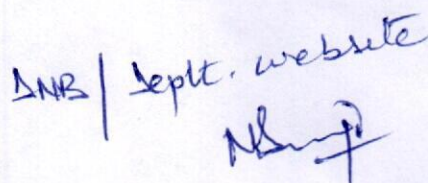 DNB / Deptt. website